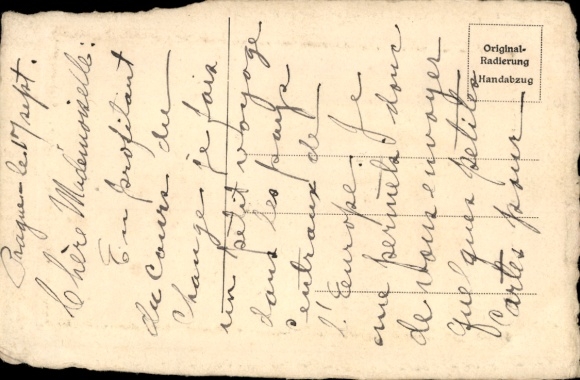 Prague le 17 sept.
Chère Mademoiselle.
En profitant
du cours du
change je fais
un petit voyage
dans les pays
centraux de
l'Europe. Je
me permets donc
de vous envoyer
quelques petites
cartes pour
Original-
Radierung
Handabzug